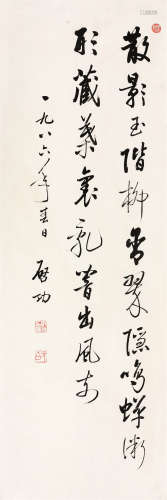 散影玉階柳含翠隱鳴蟬微
形藏葉裏亂響出風前
一九八六年春日 啟功